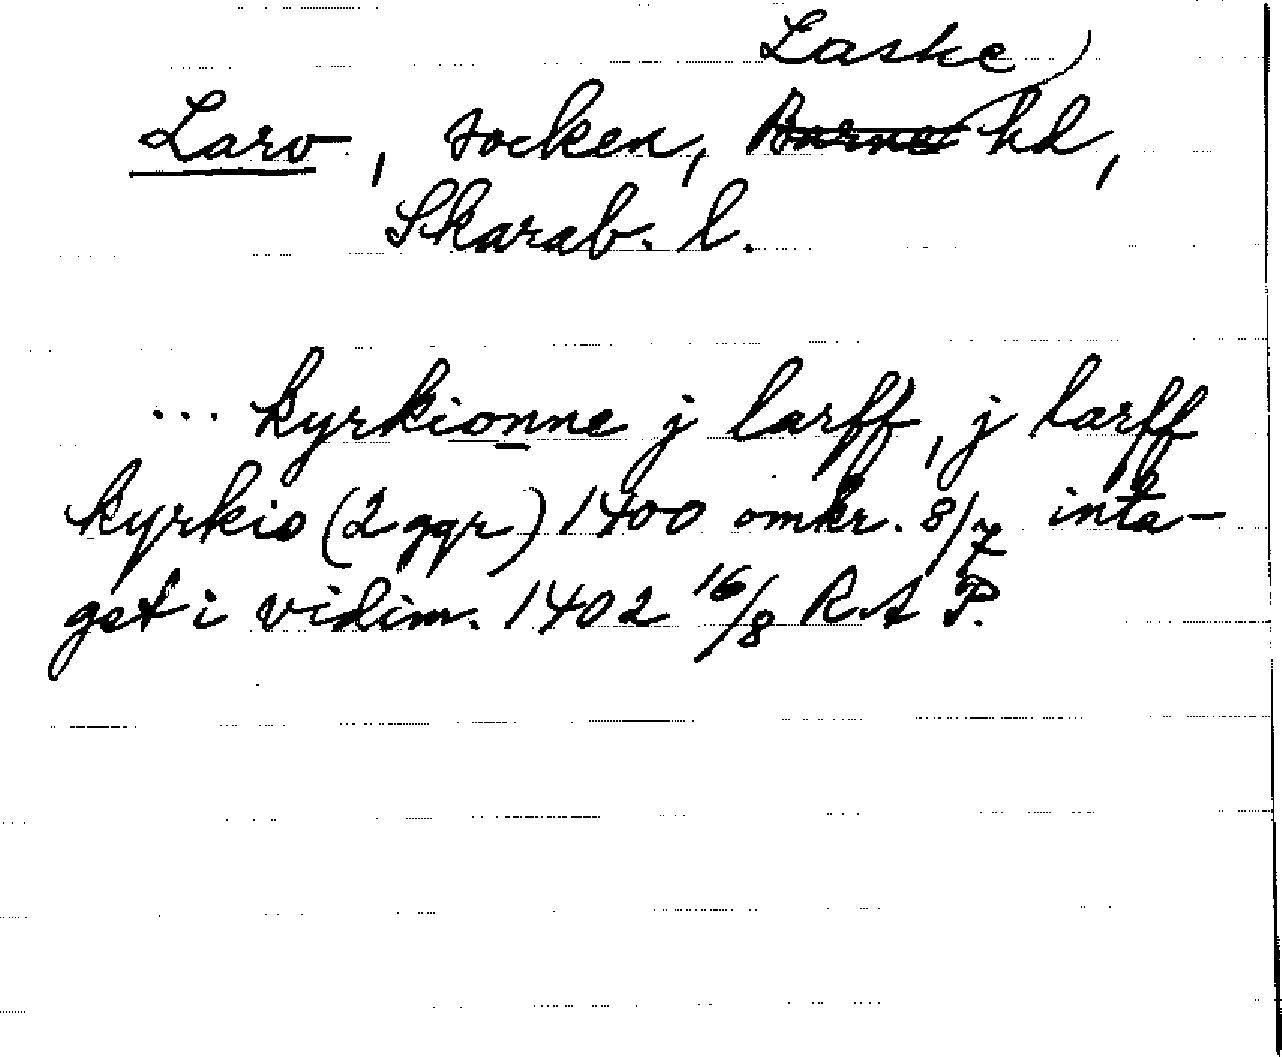 Laske
Larv, socken, Barne hd,
Skarab. l.
... kyrkionne j larff, j larff
kyrkio (2 ggr) 1400 omkr. 8/7 inta-
get i vidim. 1402 16/8 RA P.